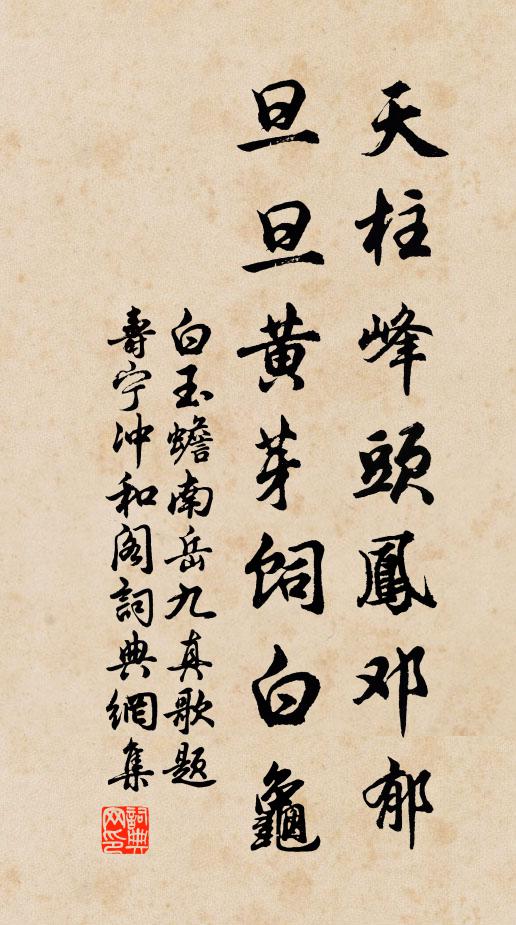 天柱峰頭鳳邓郁
旦旦黄芽饲白龜
白玉蟾南岳九真歌题
壽宁冲和阁詞典網集
詞典网印